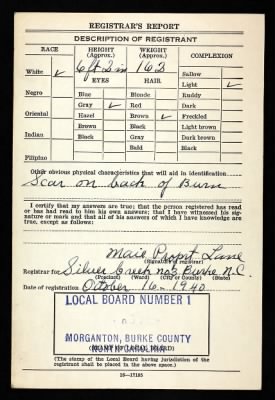 REGISTRAR'S REPORT
DESCRIPTION OF REGISTRANT
RACE HEIGHT (Approx.) WEIGHT (Approx.) COMPLEXION
White ✓ 6 ft 2 in 162 Sallow
EYES HAIR Light ✓
Negro Blue Blonde Ruddy
Gray ✓ Red Dark
Oriental Hazel Brown ✓ Freckled
Brown Black Light brown
Indian Black Gray Dark brown
Bald Black
Filipino
Other obvious physical characteristics that will aid in identification
Scar on back of Burn
I certify that my answers are true; that the person registered has read
or has had read to him his own answers; that I have witnessed his sig-
nature or mark and that all of his answers of which I have knowledge are
true, except as follows:
Lane
(Signature of registrar)
Registrar for Silver Creek no 3 Burke N.C.
(Precinct) (Ward) (City or County) (State)
Date of registration October 16 - 1940
LOCAL BOARD NUMBER 1
MORGANTON, BURKE COUNTY
NORTH CAROLINA
(STAMP OF LOCAL BOARD)
(The stamp of the Local Board having jurisdiction of the
registrant shall be placed in the above space.)